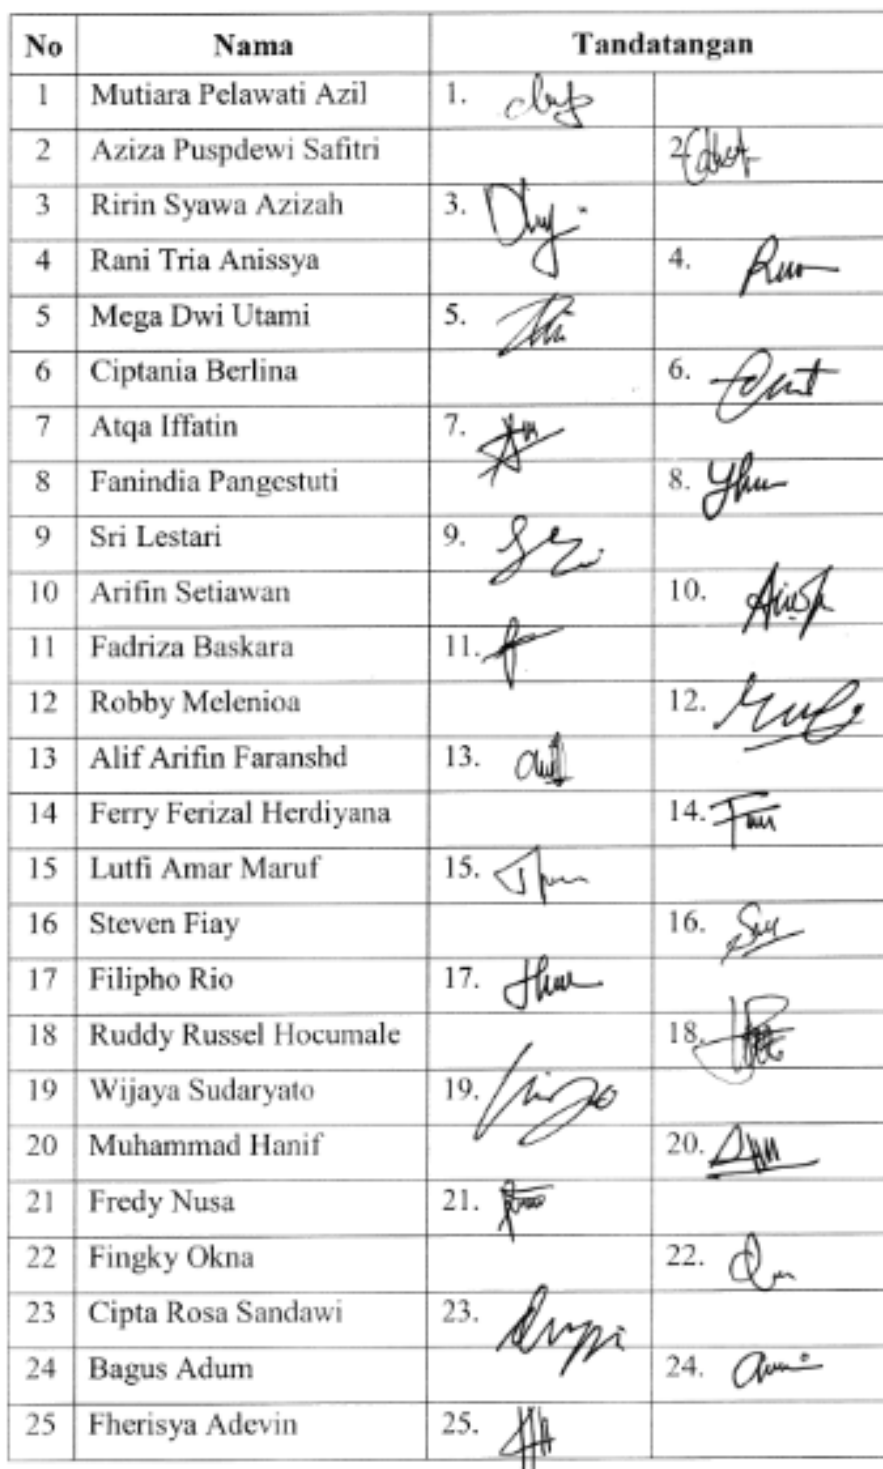 No Nama Tandatangan
1 Mutiara Pelawati Azil 1.
2 Aziza Puspdewi Safitri 2
3 Ririn Syawa Azizah 3.
4 Rani Tria Anissya 4.
5 Mega Dwi Utami 5.
6 Ciptania Berlina 6.
7 Atqa Iffatin 7.
8 Fanindia Pangestuti 8.
9 Sri Lestari 9.
10 Arifin Setiawan 10.
11 Fadriza Baskara 11.
12 Robby Melenioa 12.
13 Alif Arifin Faranshd 13.
14 Ferry Ferizal Herdiyana 14.
15 Lutfi Amar Maruf 15.
16 Steven Fiay 16.
17 Filipho Rio 17.
18 Ruddy Russel Hocumale 18.
19 Wijaya Sudaryato 19.
20 Muhammad Hanif 20.
21 Fredy Nusa 21.
22 Fingky Okna 22.
23 Cipta Rosa Sandawi 23.
24 Bagus Adum 24.
25 Fherisya Adevin 25.